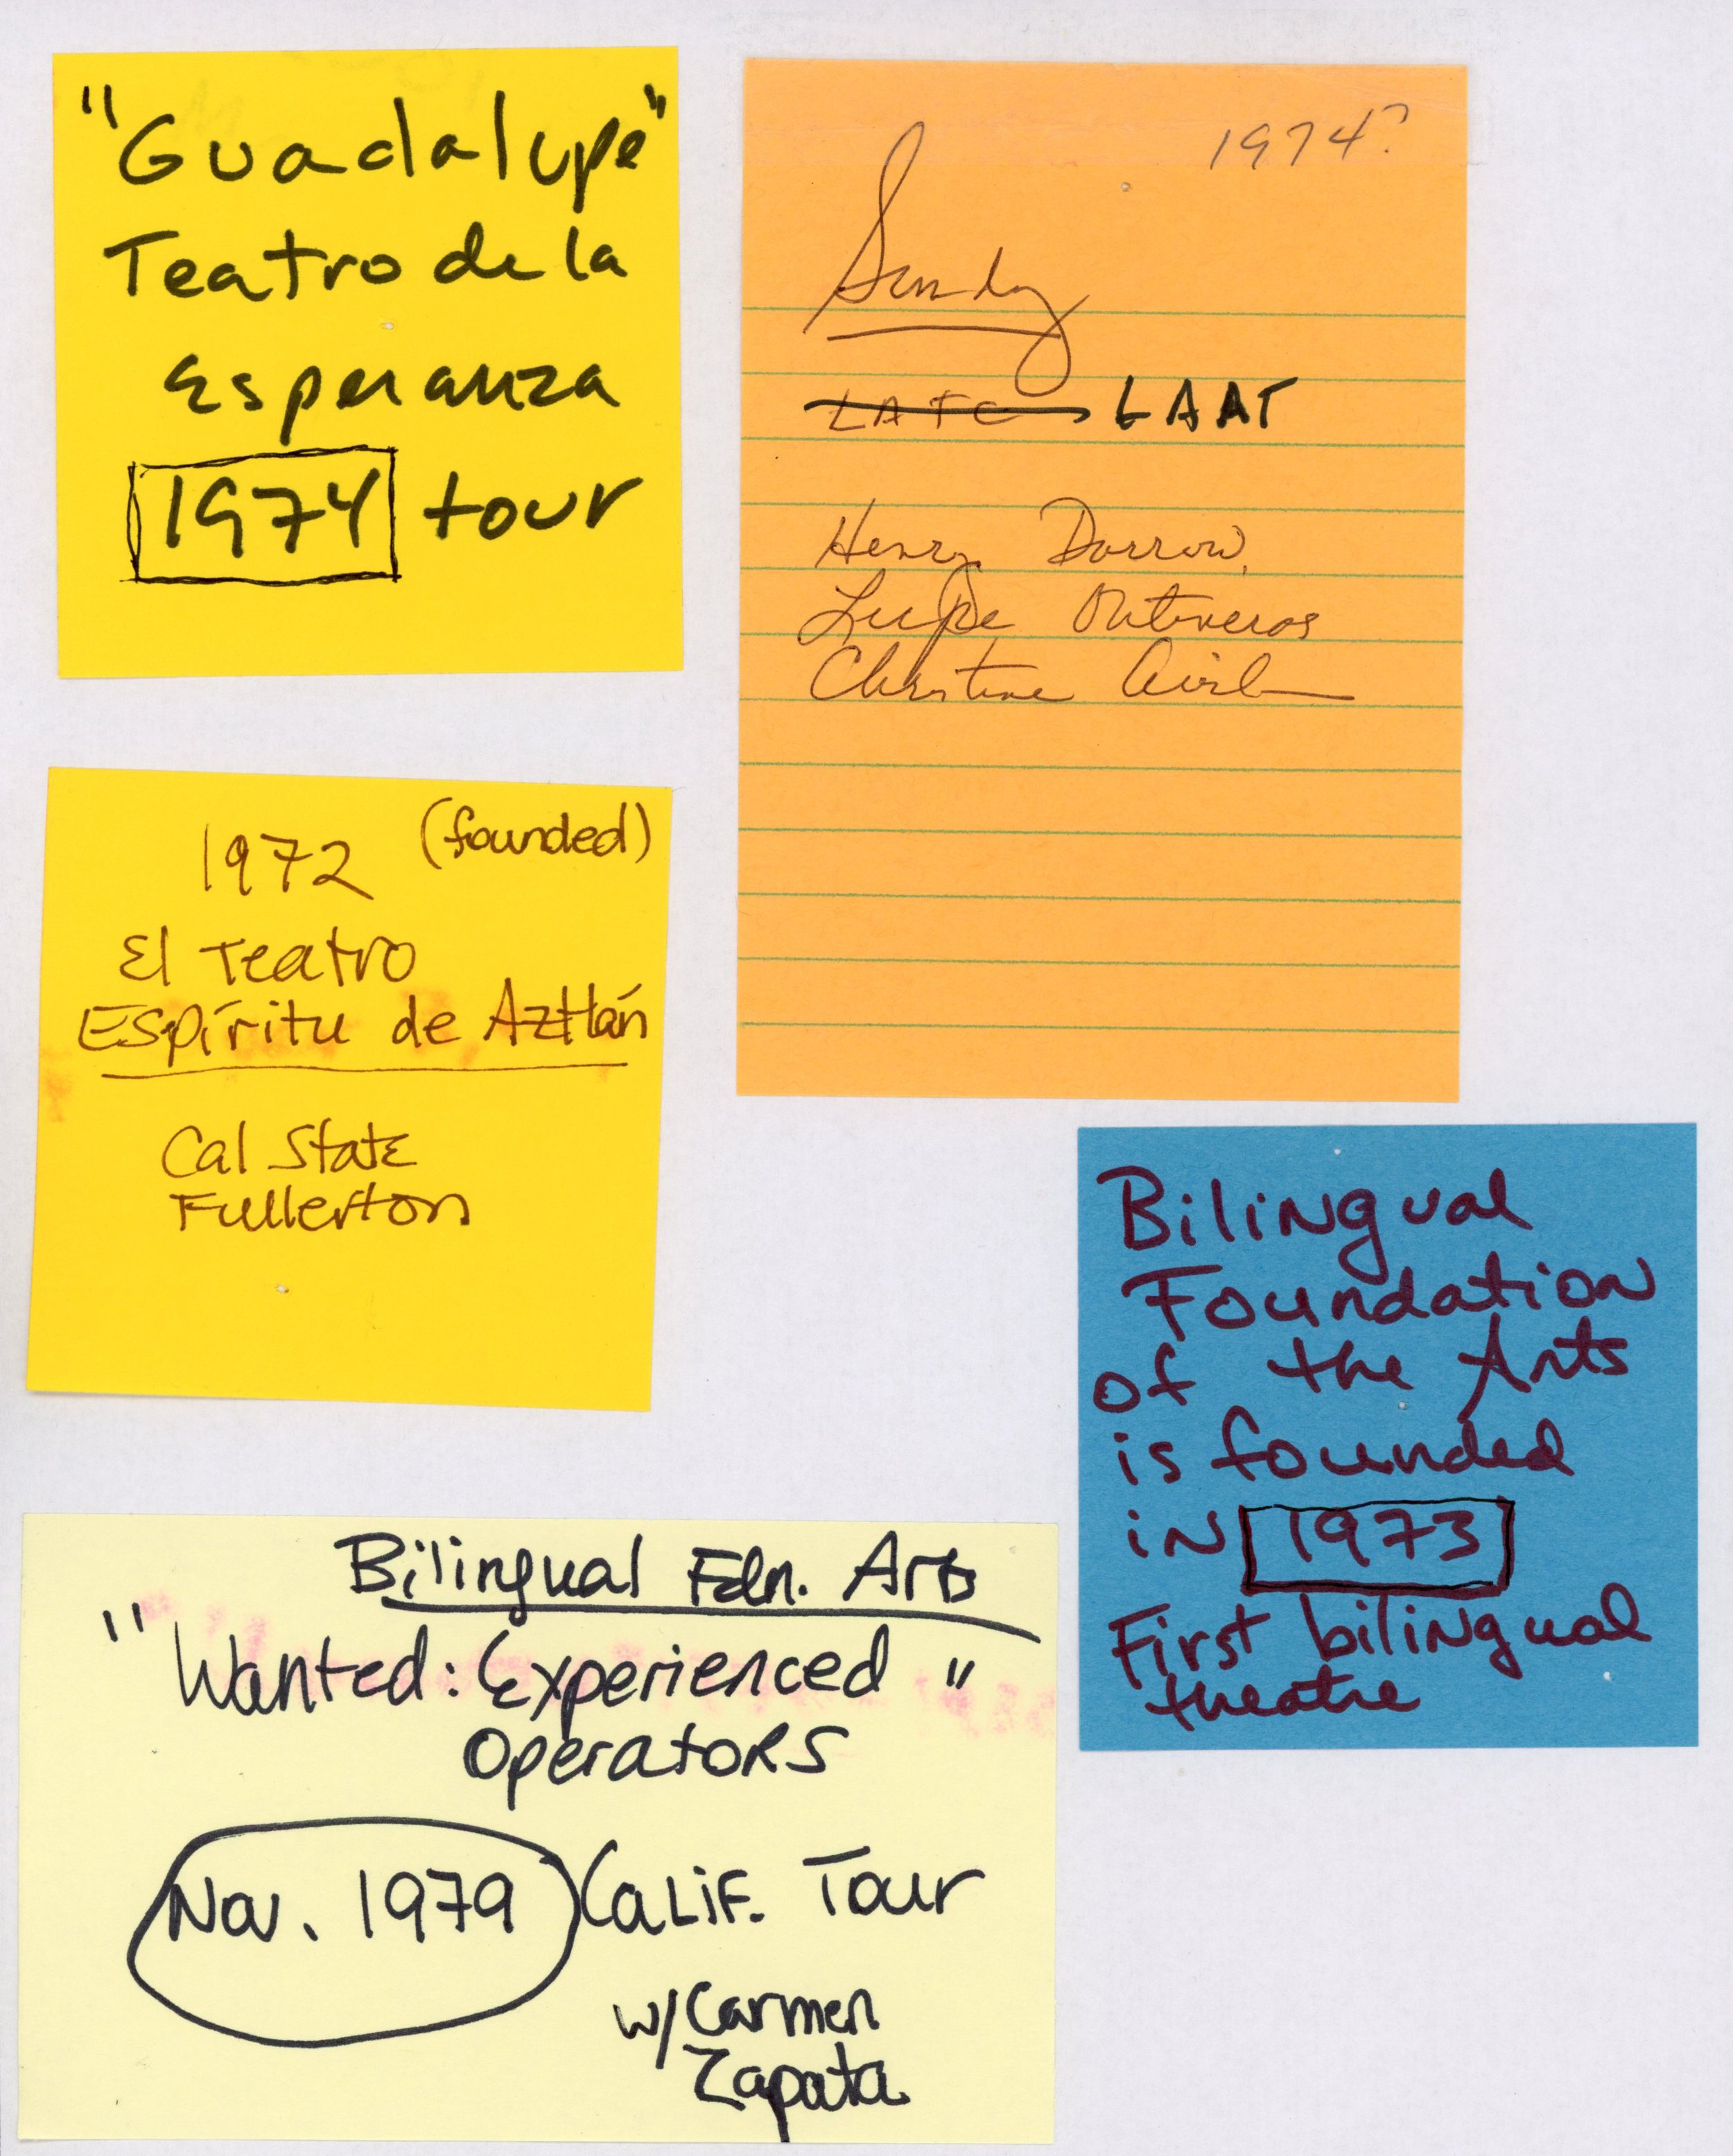 "Guadalupe"
Teatro de la
Esperanza
1974 tour
1974?
Sunday
LATC LAAT
Henry Darrow,
Lupe Ontiveros
Christine Avila
1972 (founded)
El Teatro
Espíritu de Aztlán
Cal State
Fullerton
Bilingual
Foundation
of the Arts
is founded
in 1973
First bilingual
theatre
Bilingual Fdn. Arts
"Wanted: Experienced"
Operators
Nov. 1979 Calif. Tour
w/Carmen
Zapata